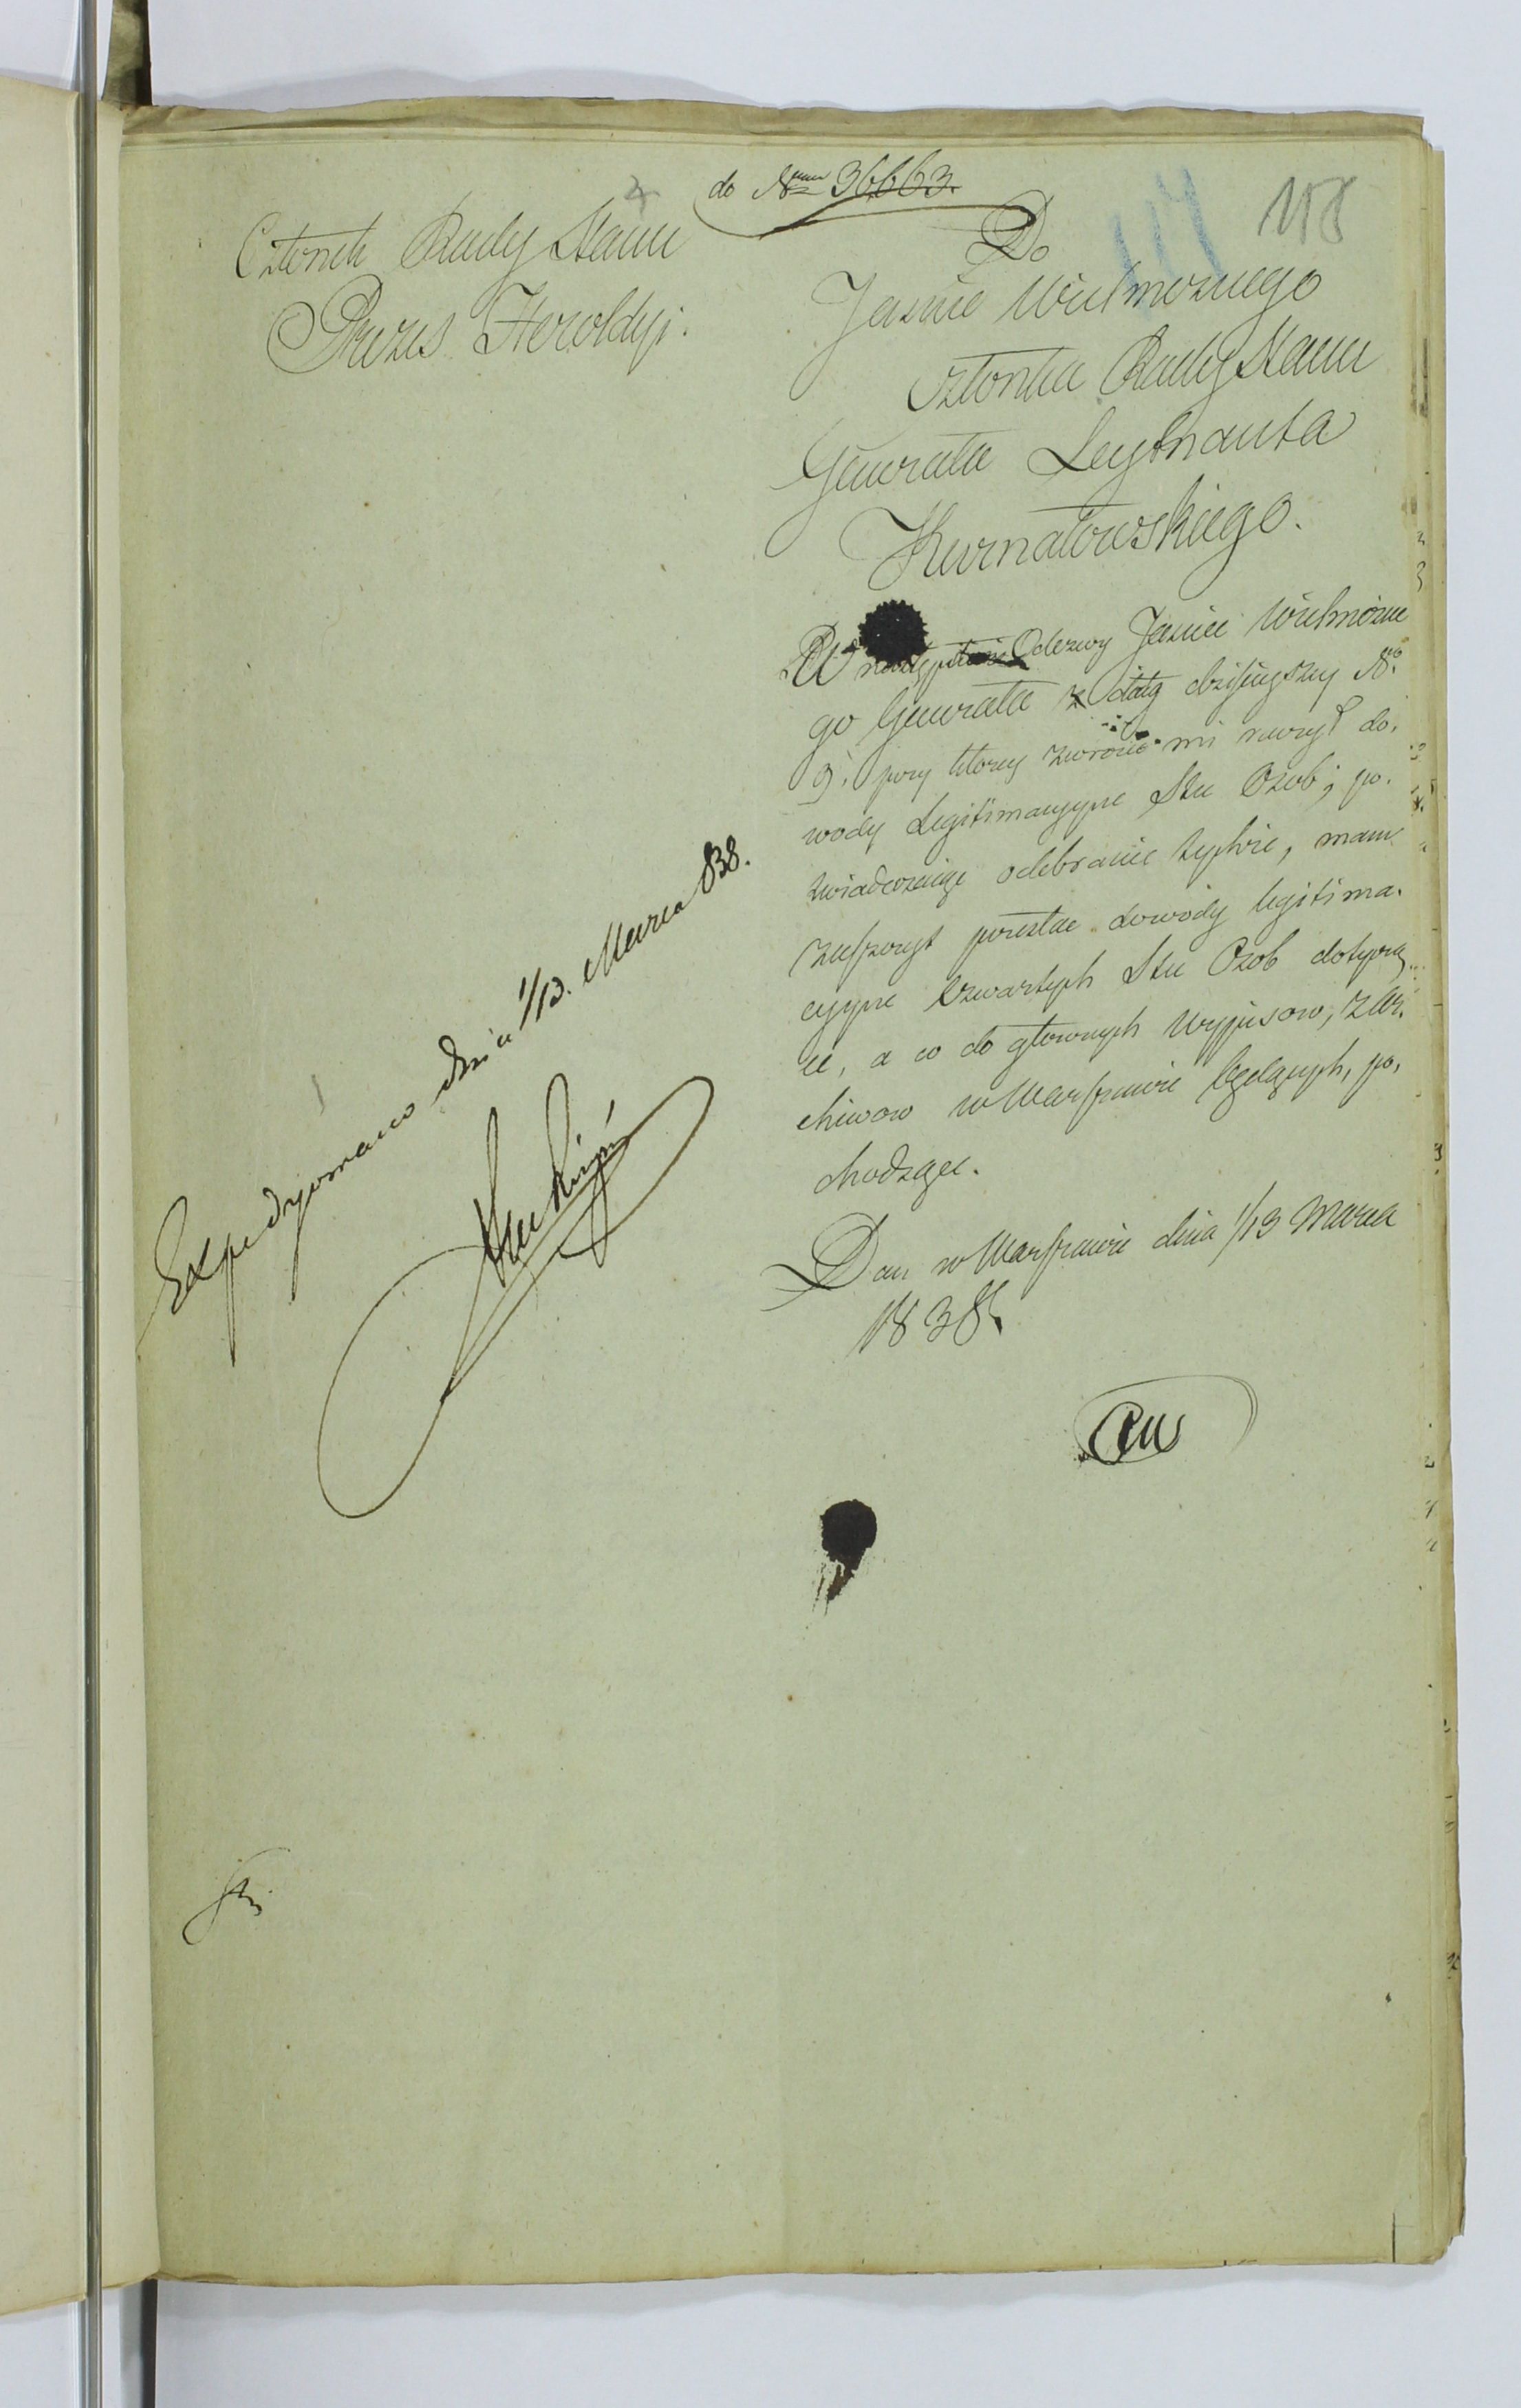 do Nru 36663.
118
117
Członek Rady Stanu
Prezes Heroldyi.
Do
Jaśnie Wielmożnego
Członka Rady Stanu
Generała Leytnanta
Kurnatowskiego.
W Odezwy Jaśnie Wielmożne
go Generała z datą dzisieyszey No.
9. przy ktorey zwrócić mi raczył do,
wody Legitimacyyne Stu Osob; po,
zwiadczaiąc odebranie tychże, mam
zaszczyt przesłać dowody legitima,
cyyne Czwartych Stu Osob dotyczą,
ce, a co do głownych wypisow, z Ar,
chiwow w Warszawie będących, po,
chodzące.
Dan w Warszawie dnia 1/13 Marca
1838.
Expedyowano dnia 1/13. Marca 838.